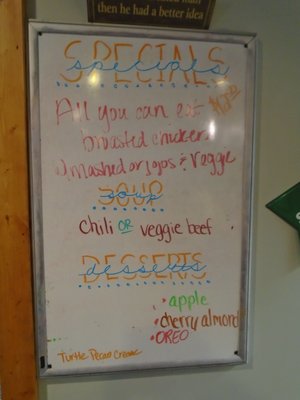 then he had a better idea
SPECIALS
specials
All you can eat
broasted chicken
w/mashed or jojos & veggie
SOUP
soup
chili OR veggie beef
DESSERTS
desserts
apple
cherry almond
OREO
Turtle Pecan Creame